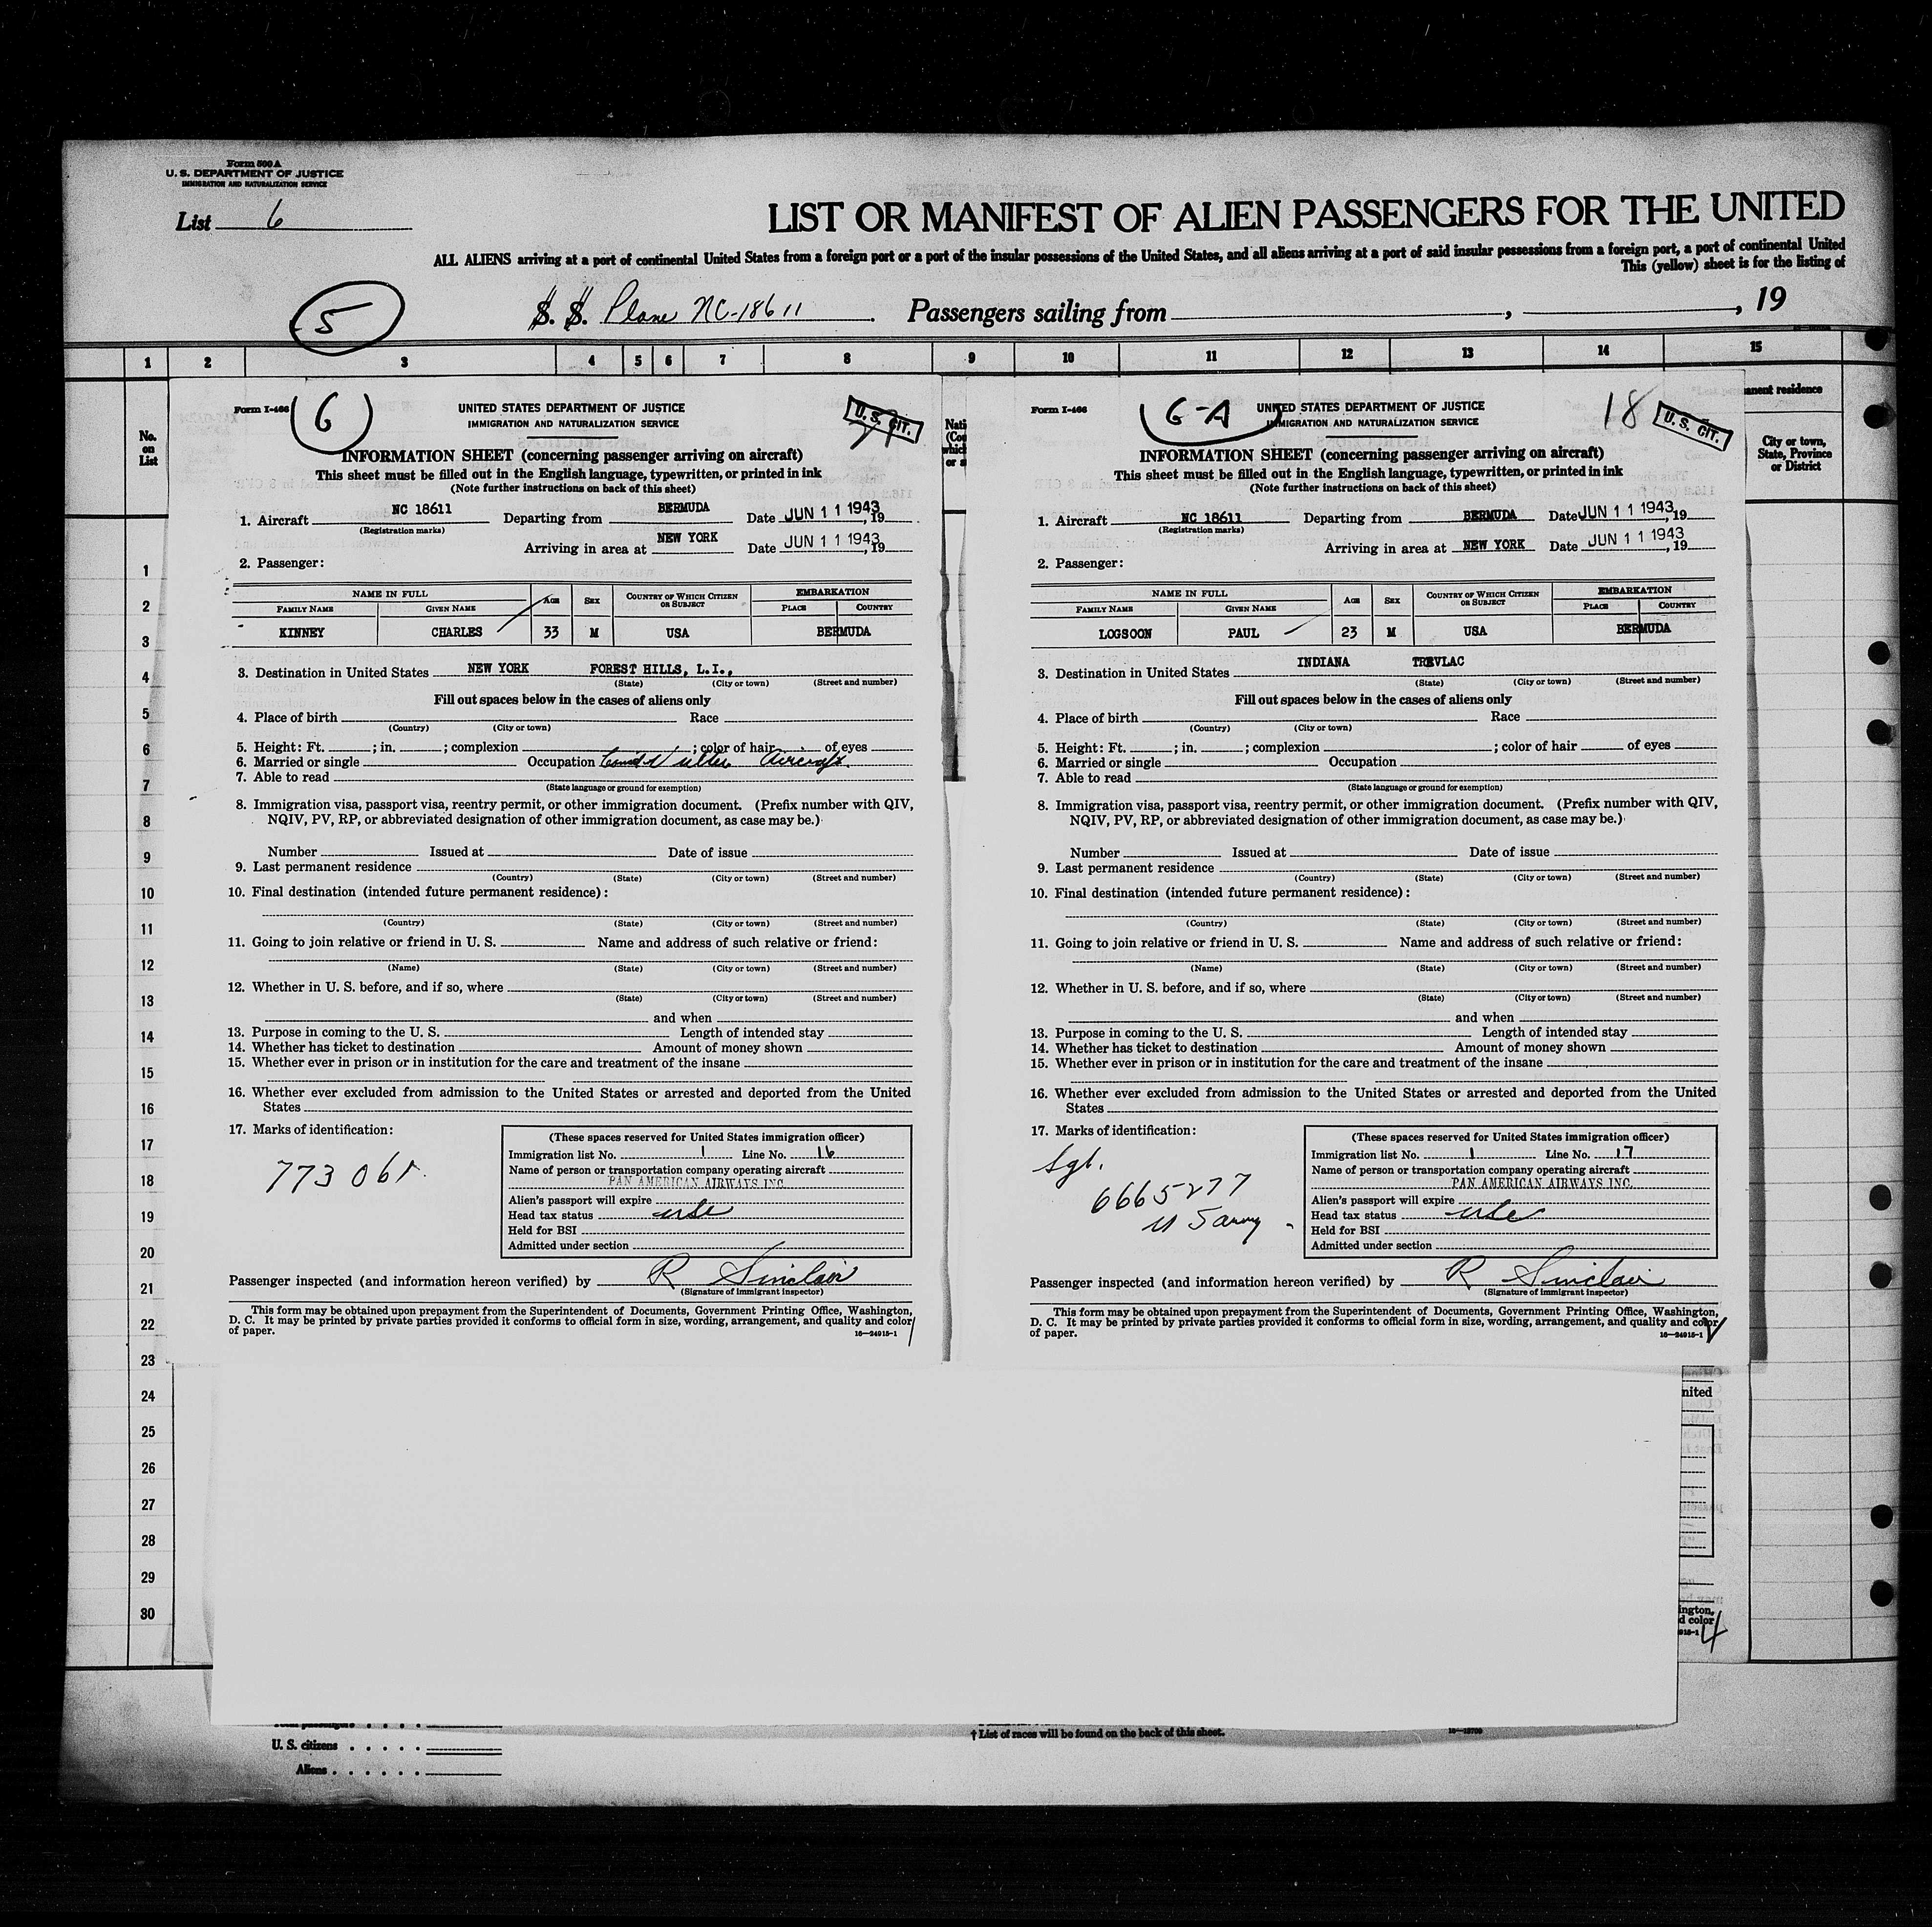 Form 500 A
U. S. DEPARTMENT OF JUSTICE
IMMIGRATION AND NATURALIZATION SERVICE
List 6
LIST OR MANIFEST OF ALIEN PASSENGERS FOR THE UNITED
ALL ALIENS arriving at a port of continental United States from a foreign port or a port of the insular possessions of the United States, and all aliens arriving at a port of said insular possessions from a foreign port, a port of continental United
This (yellow) sheet is for the listing of
5
S. S. Plane NC-18611 Passengers sailing from , 19
1 2 3 4 5 6 7 8 9 10 11 12 13 14 15
No. on List
Form I-466
6
UNITED STATES DEPARTMENT OF JUSTICE
IMMIGRATION AND NATURALIZATION SERVICE
U. S. CIT.
INFORMATION SHEET (concerning passenger arriving on aircraft)
This sheet must be filled out in the English language, typewritten, or printed in ink
(Note further instructions on back of this sheet)
1. Aircraft NC 18611 Departing from BERMUDA Date JUN 11 1943, 19
(Registration marks)
Arriving in area at NEW YORK Date JUN 11 1943, 19
2. Passenger:
NAME IN FULL AGE SEX COUNTRY OF WHICH CITIZEN OR SUBJECT EMBARKATION
FAMILY NAME GIVEN NAME PLACE COUNTRY
KINNEY CHARLES 33 M USA BERMUDA
3. Destination in United States NEW YORK FOREST HILLS, L.I.,
(State) (City or town) (Street and number)
Fill out spaces below in the cases of aliens only
4. Place of birth Race
(Country) (City or town)
5. Height: Ft. ; in. ; complexion ; color of hair of eyes
6. Married or single Occupation Aircraft
7. Able to read
(State language or ground for exemption)
8. Immigration visa, passport visa, reentry permit, or other immigration document. (Prefix number with QIV,
NQIV, PV, RP, or abbreviated designation of other immigration document, as case may be.)
Number Issued at Date of issue
9. Last permanent residence
(Country) (State) (City or town) (Street and number)
10. Final destination (intended future permanent residence):
(Country) (State) (City or town) (Street and number)
11. Going to join relative or friend in U. S. Name and address of such relative or friend:
(Name) (State) (City or town) (Street and number)
12. Whether in U. S. before, and if so, where
(State) (City or town) (Street and number)
and when
13. Purpose in coming to the U. S. Length of intended stay
14. Whether has ticket to destination Amount of money shown
15. Whether ever in prison or in institution for the care and treatment of the insane
16. Whether ever excluded from admission to the United States or arrested and deported from the United
States
17. Marks of identification:
(These spaces reserved for United States immigration officer)
Immigration list No. 1 Line No. 16
Name of person or transportation company operating aircraft
PAN AMERICAN AIRWAYS INC.
Alien's passport will expire
Head tax status
Held for BSI
Admitted under section
Passenger inspected (and information hereon verified) by R Sinclair
(Signature of immigrant inspector)
This form may be obtained upon prepayment from the Superintendent of Documents, Government Printing Office, Washington,
D. C. It may be printed by private parties provided it conforms to official form in size, wording, arrangement, and quality and color
of paper.
16—24915-1
Form I-466
6-A
UNITED STATES DEPARTMENT OF JUSTICE
IMMIGRATION AND NATURALIZATION SERVICE
18
U. S. CIT.
INFORMATION SHEET (concerning passenger arriving on aircraft)
This sheet must be filled out in the English language, typewritten, or printed in ink
(Note further instructions on back of this sheet)
1. Aircraft NC 18611 Departing from BERMUDA Date JUN 11 1943, 19
(Registration marks)
Arriving in area at NEW YORK Date JUN 11 1943, 19
2. Passenger:
NAME IN FULL AGE SEX COUNTRY OF WHICH CITIZEN OR SUBJECT EMBARKATION
FAMILY NAME GIVEN NAME PLACE COUNTRY
LOGSOON PAUL 23 M USA BERMUDA
3. Destination in United States INDIANA TREVLAC
(State) (City or town) (Street and number)
Fill out spaces below in the cases of aliens only
4. Place of birth Race
(Country) (City or town)
5. Height: Ft. ; in. ; complexion ; color of hair of eyes
6. Married or single Occupation
7. Able to read
(State language or ground for exemption)
8. Immigration visa, passport visa, reentry permit, or other immigration document. (Prefix number with QIV,
NQIV, PV, RP, or abbreviated designation of other immigration document, as case may be.)
Number Issued at Date of issue
9. Last permanent residence
(Country) (State) (City or town) (Street and number)
10. Final destination (intended future permanent residence):
(Country) (State) (City or town) (Street and number)
11. Going to join relative or friend in U. S. Name and address of such relative or friend:
(Name) (State) (City or town) (Street and number)
12. Whether in U. S. before, and if so, where
(State) (City or town) (Street and number)
and when
13. Purpose in coming to the U. S. Length of intended stay
14. Whether has ticket to destination Amount of money shown
15. Whether ever in prison or in institution for the care and treatment of the insane
16. Whether ever excluded from admission to the United States or arrested and deported from the United
States
17. Marks of identification:
Sgt.
6665277
U S army
(These spaces reserved for United States immigration officer)
Immigration list No. 1 Line No. 17
Name of person or transportation company operating aircraft
PAN AMERICAN AIRWAYS INC.
Alien's passport will expire
Head tax status
Held for BSI
Admitted under section
Passenger inspected (and information hereon verified) by R Sinclair
(Signature of immigrant inspector)
This form may be obtained upon prepayment from the Superintendent of Documents, Government Printing Office, Washington,
D. C. It may be printed by private parties provided it conforms to official form in size, wording, arrangement, and quality and color
of paper.
16—24915-1
anent residence
City or town, State, Province or District
1
2
3
4
5
6
7
8
9
10
11
12
13
14
15
16
17
18
19
20
21
22
23
24
25
26
27
28
29
30
nited
ington,
d color
4
† List of races will be found on the back of this sheet.
U. S. citizens
Aliens